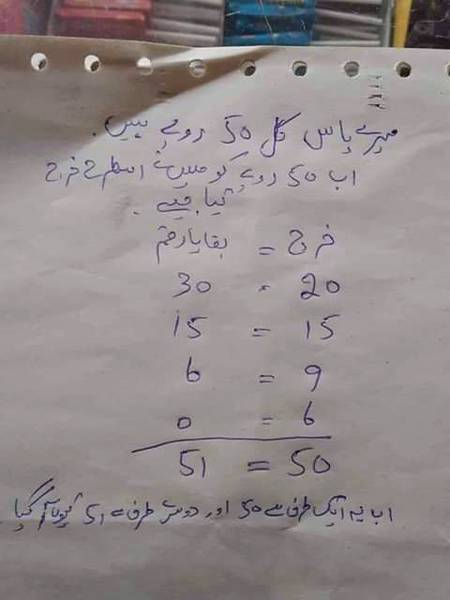 میرے پاس کل 50 روپے ہیں.
اب 50 روپے کو میں نے اسطرح خرچ
کیا جیسے.
خرچ = بقایا رقم
20 = 30
15 = 15
9 = 6
6 = 0
50 = 51
اب یہ ایک طرف سے 50 اور دوسری طرف سے 51 کیوں آ گیا